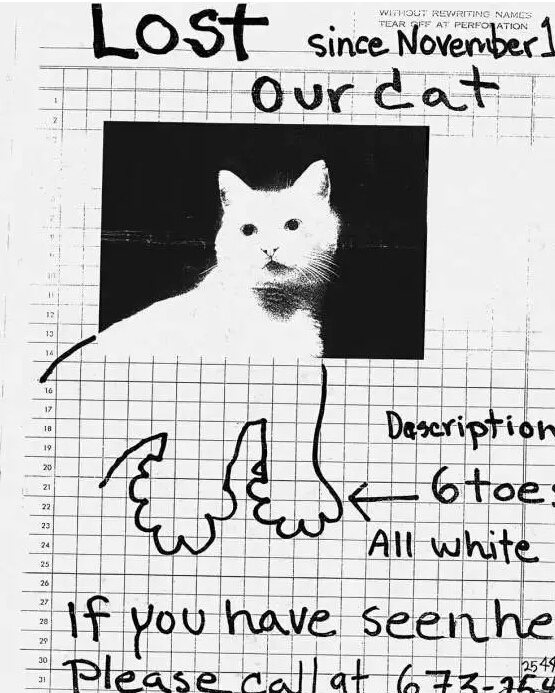 WITHOUT REWRITING NAMES
TEAR OFF AT PERFORATION
Lost since November 1
our cat
1
2
9
10
11
12
13
14
16
17
18
Description
19
20
21
6 toes
22
23
24
All white
25
26
27
If you have seen he
28
29
30
2544
31
Please call at 673-254